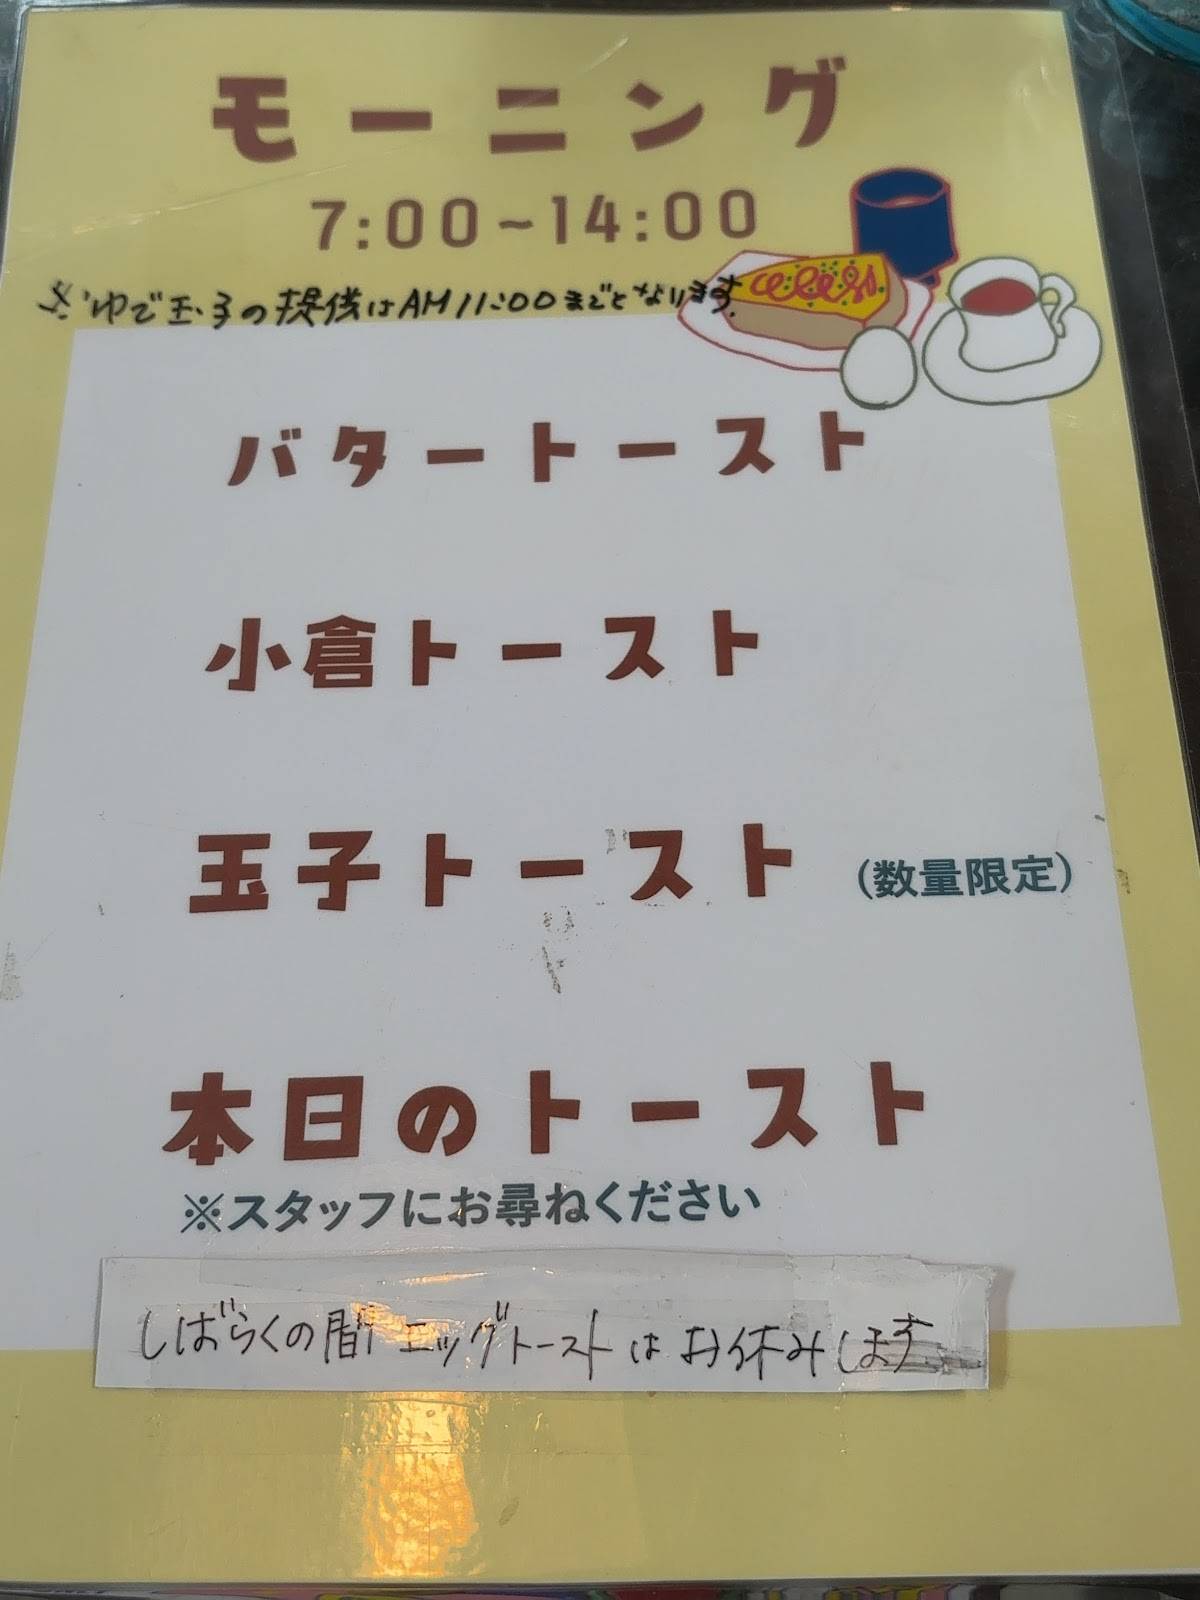 モーニング
7:00~14:00
※ゆで玉子の提供はAM11:00までとなります.
バタートースト
小倉トースト
玉子トースト (数量限定)
本日のトースト
※スタッフにお尋ねください
しばらくの間 エッグトーストは お休みします